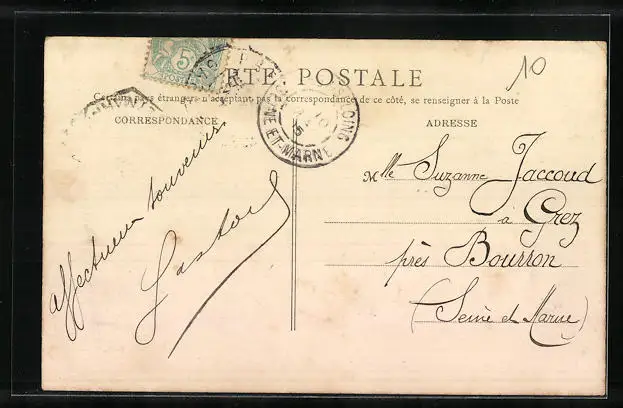 CARTE POSTALE
10
Certains pays étrangers n'acceptant pas la correspondance de ce côté, se renseigner à la Poste
CORRESPONDANCE
ADRESSE
5
POSTES
LOING
NE ET-MARNE
affectueux souvenirs
Gaston
Mlle Suzanne Jaccoud
à Grez
près Bourron
(Seine et Marne)